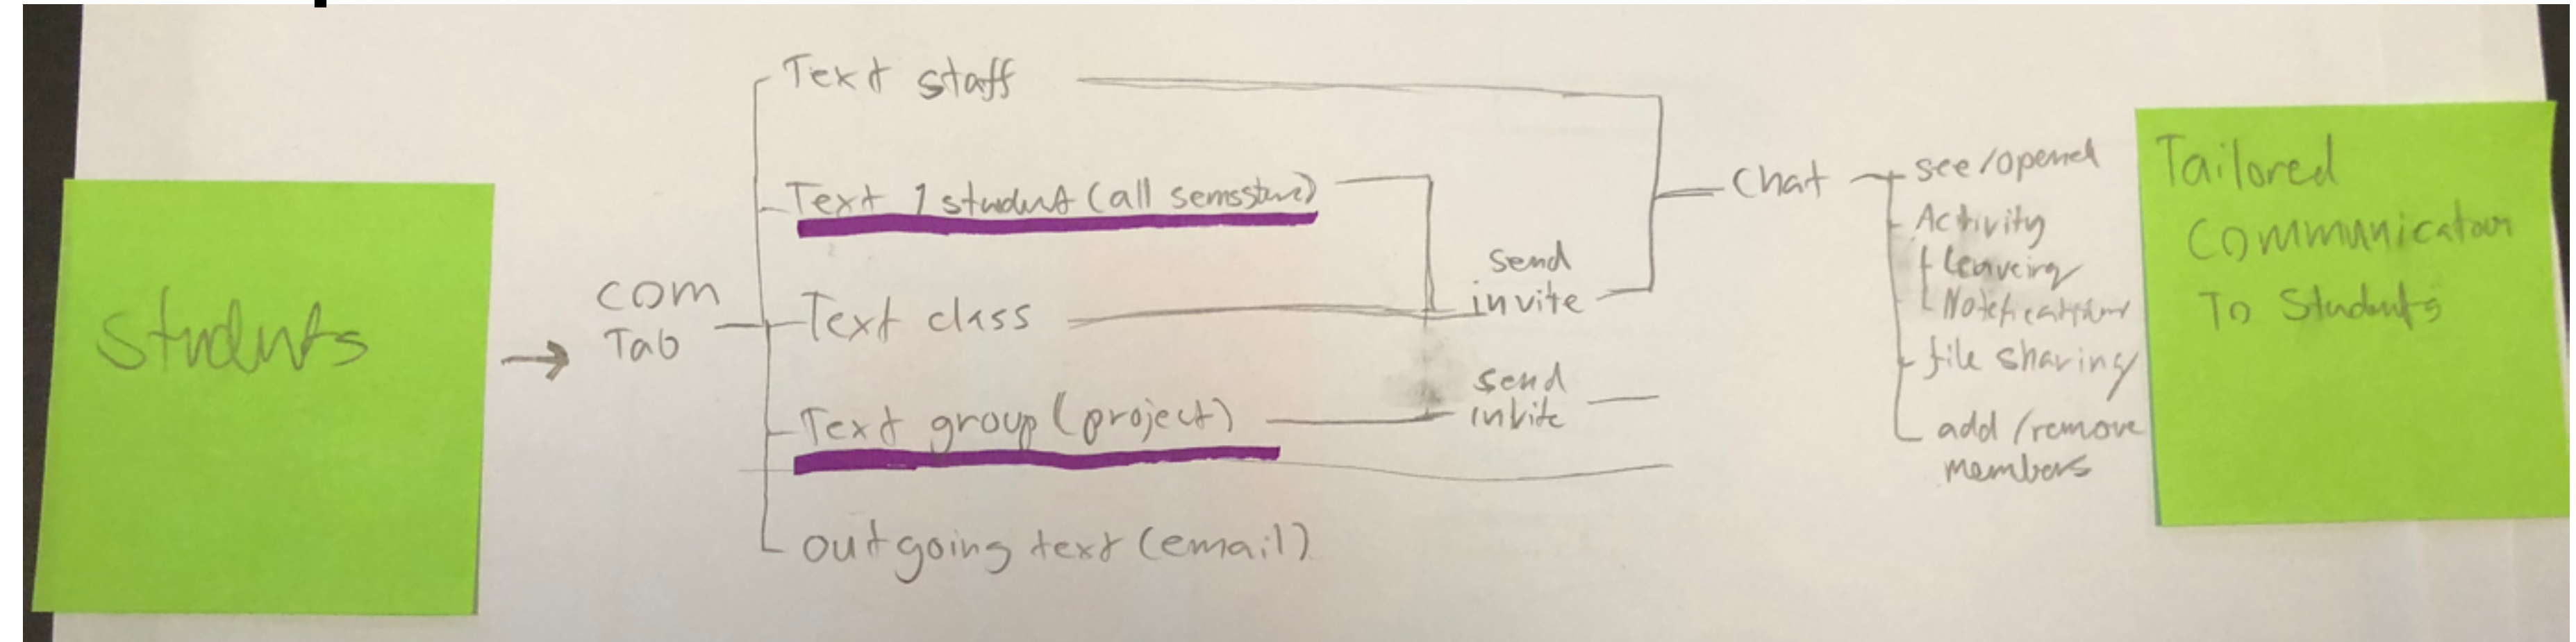 Students
→
com
Tab
Text staff
Text 1 student (all semsstures)
Text class
Text group (project)
outgoing text (email)
send
invite
send
invite
Chat
see/opened
Activity
Leaveing
Notefications
file sharing
add/remove
members
Tailored
Communication
To Students